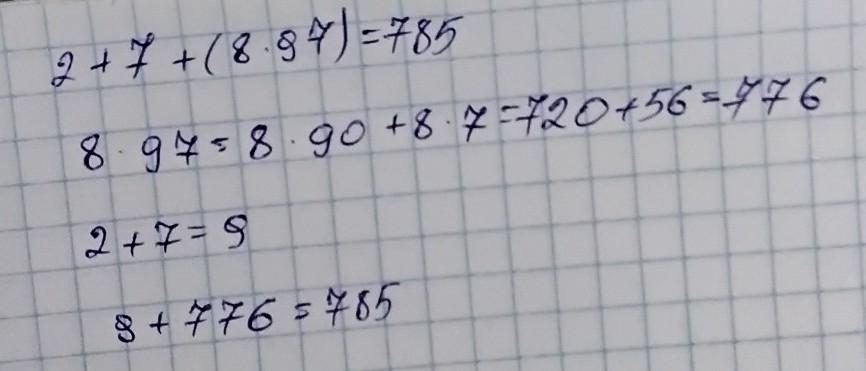 2 + 7 + (8 · 97) = 785
8 · 97 = 8 · 90 + 8 · 7 = 720 + 56 = 776
2 + 7 = 9
9 + 776 = 785